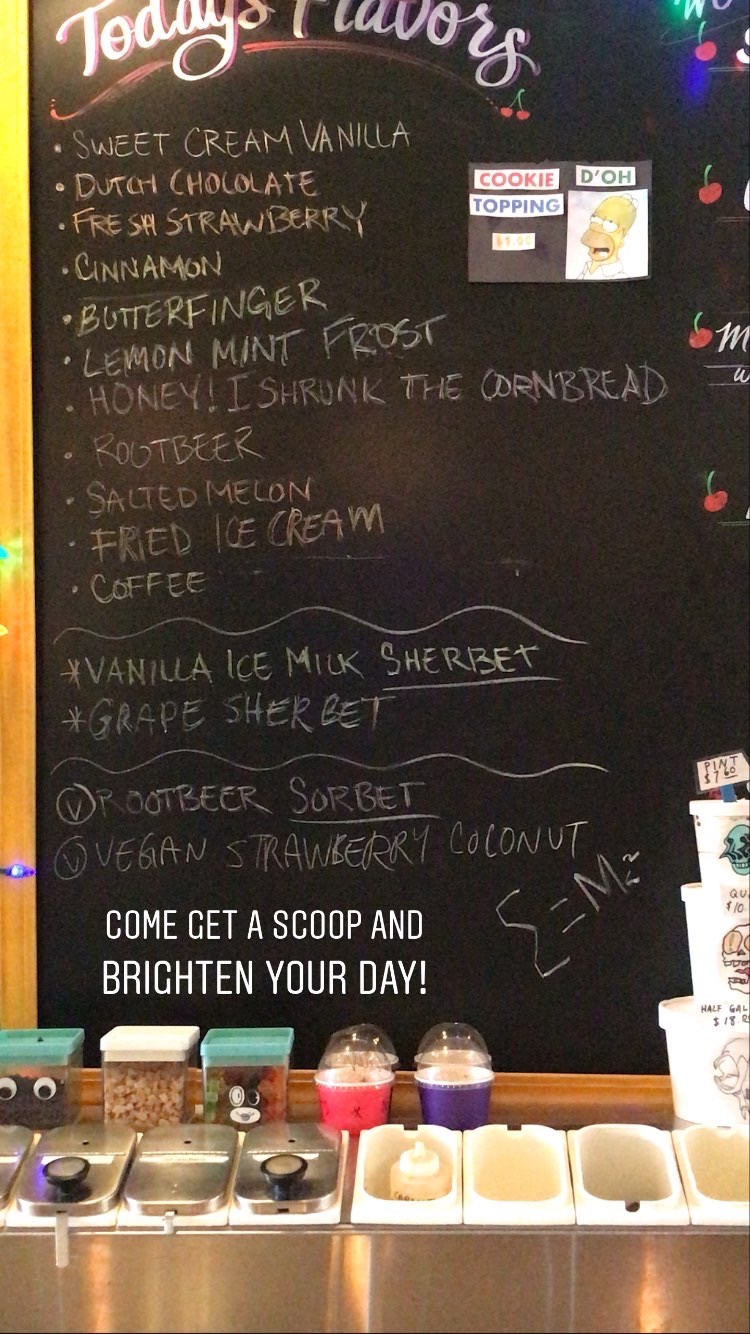 Today's Flavors
• SWEET CREAM VANILLA
• DUTCH CHOCOLATE
• FRESH STRAWBERRY
• CINNAMON
• BUTTERFINGER
• LEMON MINT FROST
• HONEY! I SHRUNK THE CORNBREAD
• ROOTBEER
• SALTED MELON
• FRIED ICE CREAM
• COFFEE
*VANILLA ICE MILK SHERBET
*GRAPE SHERBET
Ⓥ ROOTBEER SORBET
Ⓥ VEGAN STRAWBERRY COCONUT
COOKIE D'OH
TOPPING
$1.00
COME GET A SCOOP AND
BRIGHTEN YOUR DAY!
PINT
$7.60
QU
$10.
HALF GAL
$18.